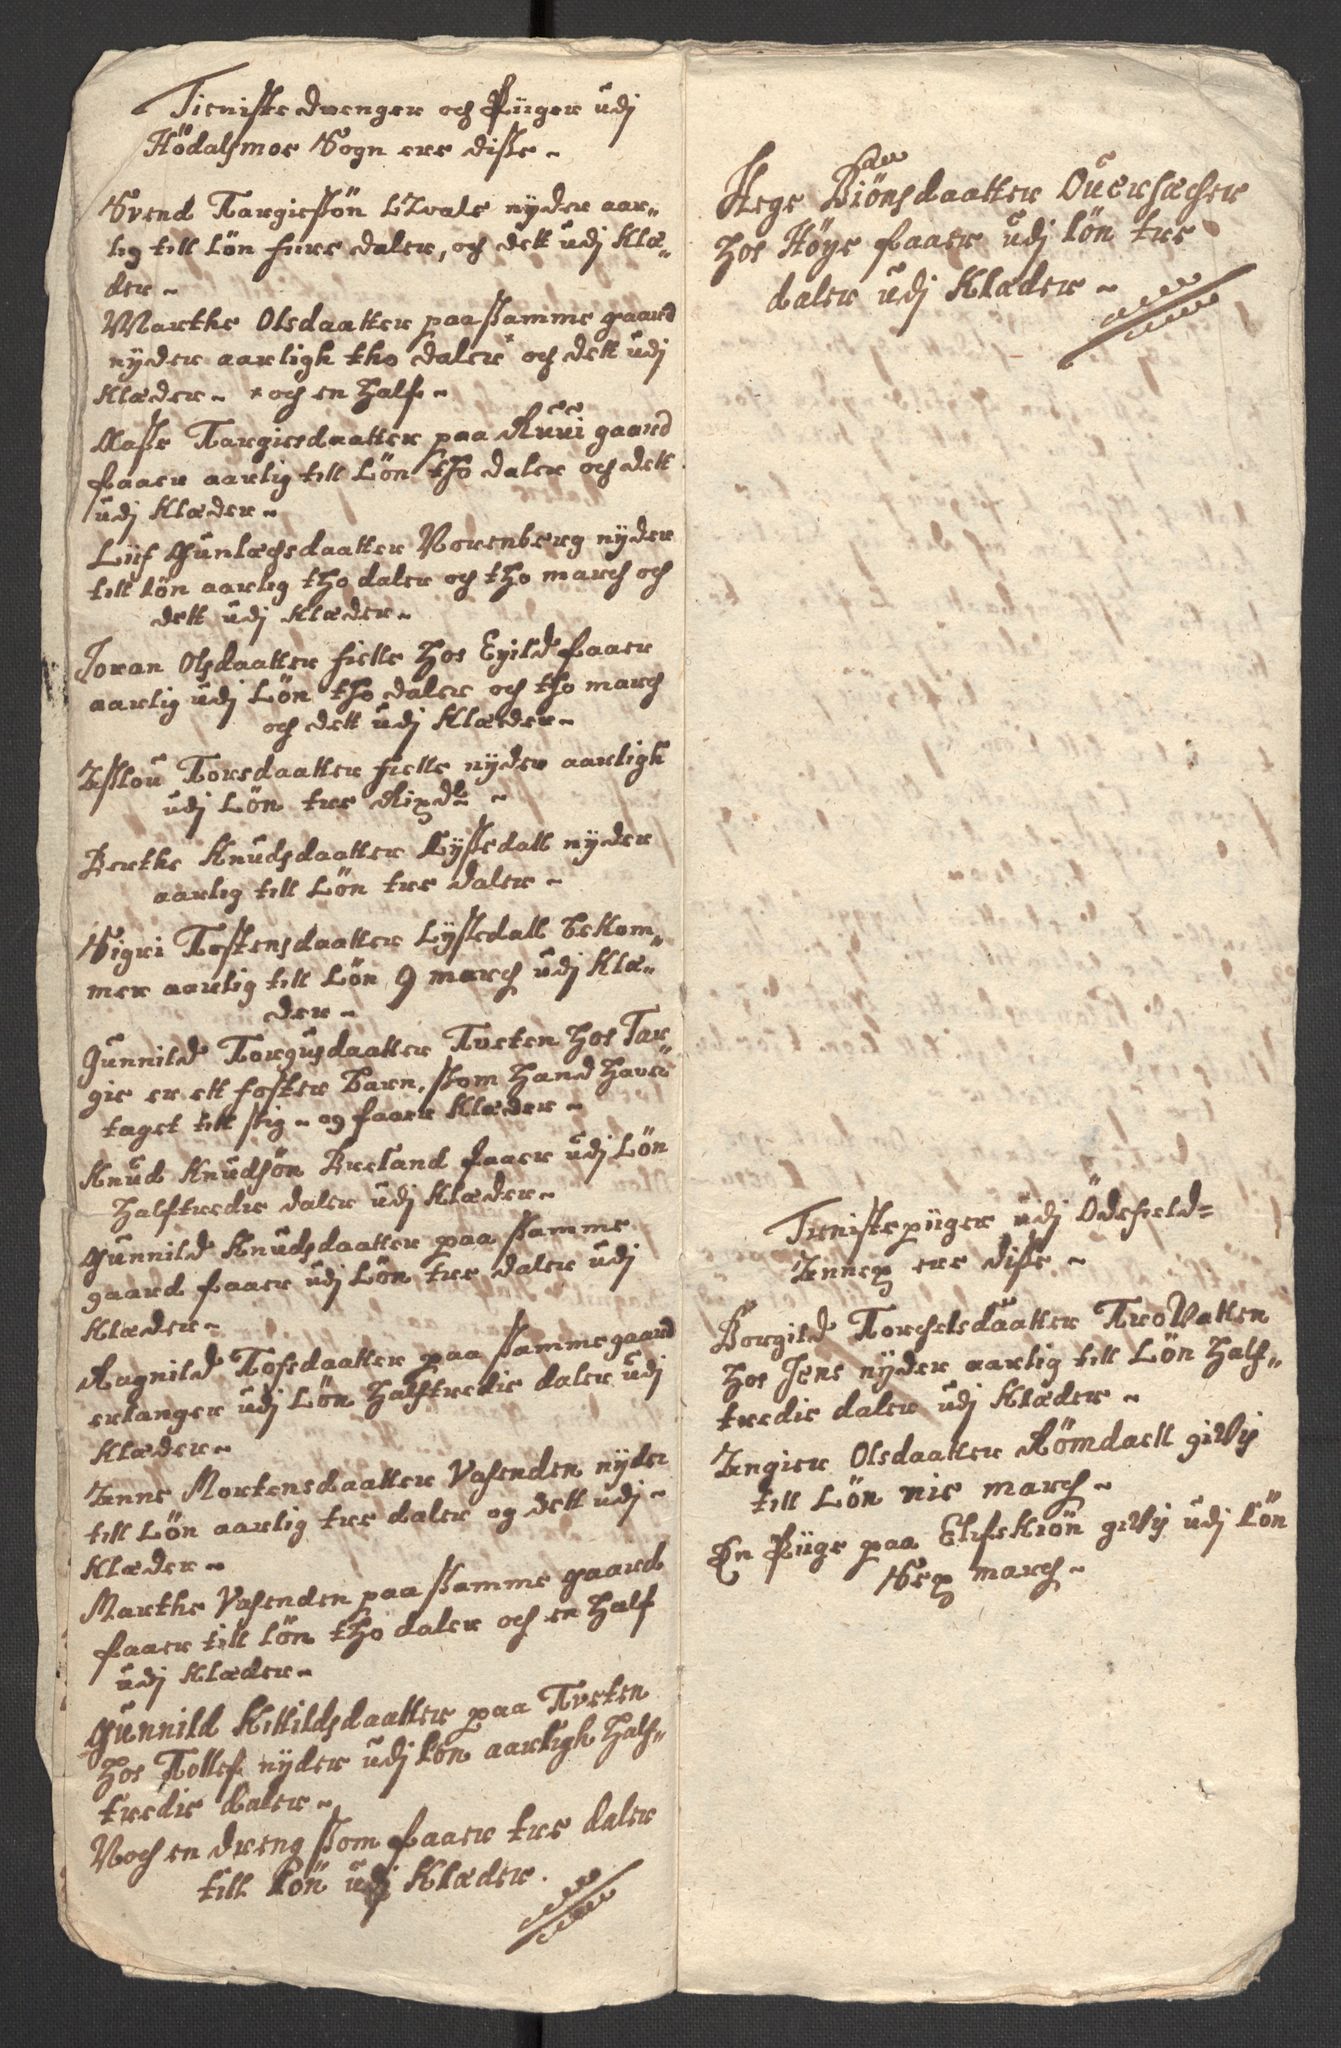 Tieniste drenger och Piiger udj
Hödalsmoe Sogn ere disse~
Svend Targiesßön Qvale nyder aar„
lig till Lön fiire daler, och dett udj Klæ„
der~
Marthe Olsdaatter paa samme gaard
nyder aarligh tho daler och dett udj
Klæder~ * och en half~
Aasse Targiesdaatter paa Ruui gaard
faaer aarlig till Lön tho daler och dett
udj Klæder~
Liif Gunlachsdaatter Norenberg nyder
till Lön aarlig tho daler och tho march och
dett udj Klæder~
Joran Olsdaatter fielle hos Eyild faaer
aarlig udj Lön tho daler och tho march
och dett udj Klæder~
Aslou Torsdaatter fielle nyder aarligh
udj Lön tre Rixdlr ~
Berthe Knudsdaatter Lyssedall nyder
aarlig till Lön tre daler~
Sigri Tostensdaatter Lyssedall bekom„
mer aarlig till Lön 9 march udj Klæ„
der~
Gunnild Torgusdaatter Tveten hos Tar„
gie er ett foster barn, som hand haver
taget till sig~ og faaer Klæder~
Knud Knudsön Breland faaer udj Lön
halftredie daler udj Klæder~
Gunnild Knudsdaatter paa samme
gaard faaer udj Lön tre daler udj
Klæder~
Ragnild Tofsdaatter paa samme gaard
erlanger udj Lön halftredie daler udj
Klæder~
Anne Mortensdaatter Vasenden nyder
till Lön aarlig tre daler og dett udj~
Klæder~
Marthe Vasenden paa samme gaard
faaer till Lön tho daler och en half
udj Klæder~
Gunnild Kittildsdaatter paa Tveten
hos Tollef nyder udj Lön aarligh half„
tredie daler~
Noch en dreng som faaer tre daler
till Lön udj Klæder.
Hege Biönsdaatter Ouersacher
hos Höye faaer udj Lön tre
daler udj Klæder~
Tienistepiiger udj Ödefield=
Annex ere disse~
Borgild Torchelsdaatter TroVatten
hos Jens nyder aarlig till Lön half„
tredie daler udj Klæder~
Angier Olsdaatter Römdall giVis
till Lön nie march~
En Piige paa Elefskiön giVis udj Lön
Sex march~